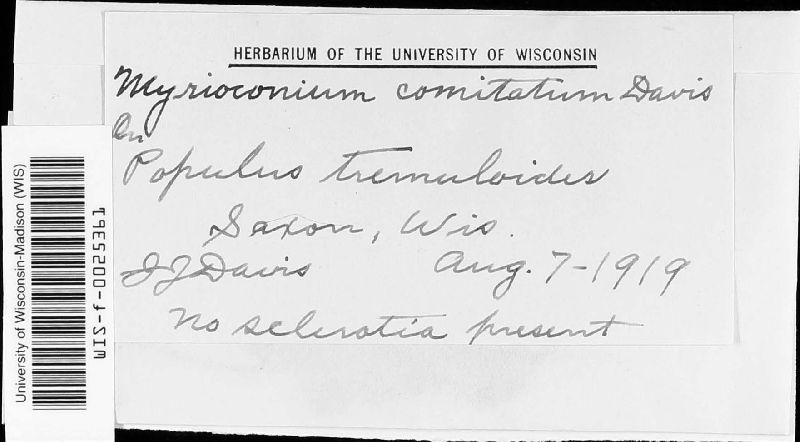 HERBARIUM OF THE UNIVERSITY OF WISCONSIN
Myrioconium comitatum Davis
On
Populus tremuloides
Saxon, Wis.
JJDavis Aug. 7-1919
No sclerotia present
University of Wisconsin-Madison (WIS)
WIS-f-0025361